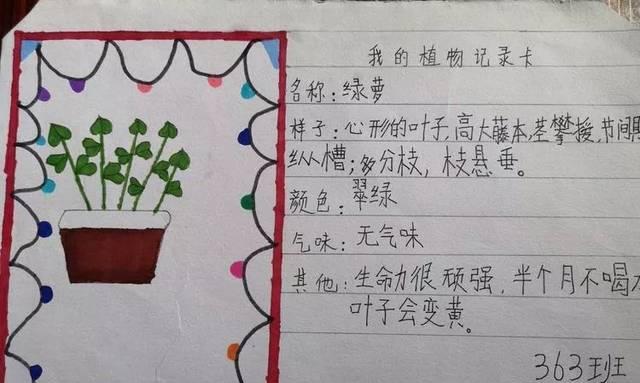 我的植物记录卡
名称：绿萝
样子：心形的叶子，高大藤本，茎攀援，节间
纵槽；多分枝，枝悬垂。
颜色：翠绿
气味：无气味
其他：生命力很顽强，半个月不喝
叶子会变黄。
363班